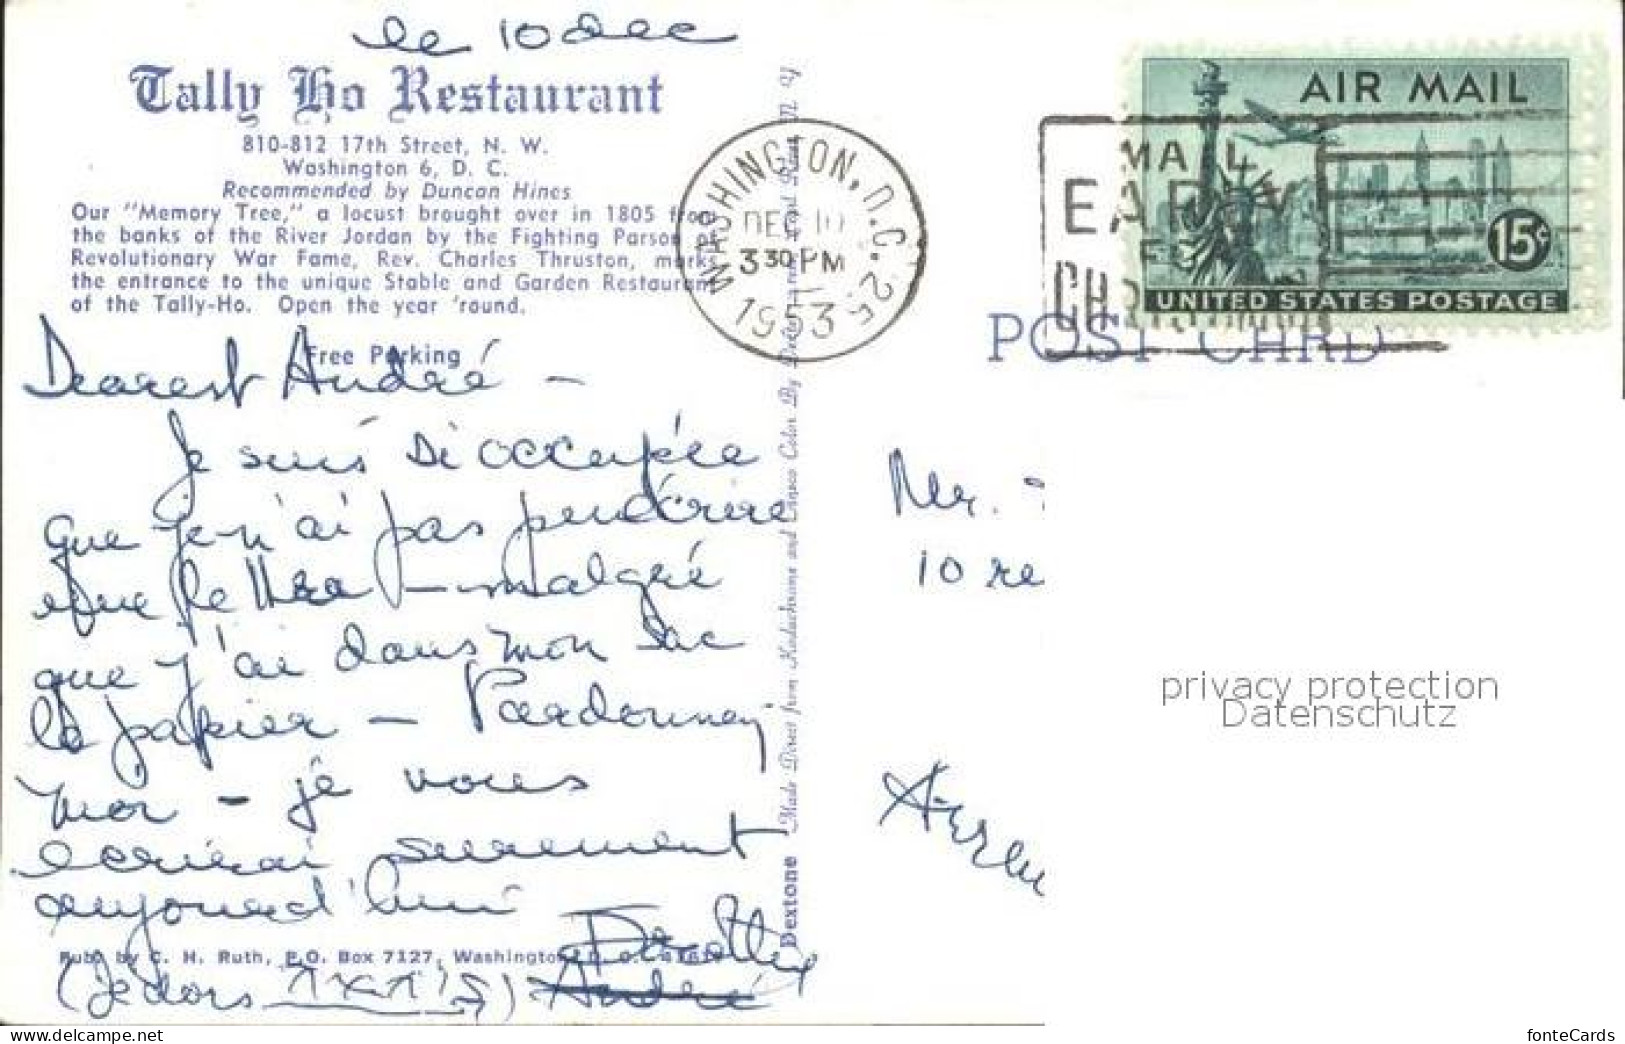 le 10 dec
Tally Ho Restaurant
810-812 17th Street, N. W.
Washington 6, D. C.
Recommended by Duncan Hines
Our "Memory Tree," a locust brought over in 1805 from
the banks of the River Jordan by the Fighting Parson of
Revolutionary War Fame, Rev. Charles Thruston, marks
the entrance to the unique Stable and Garden Restaurant
of the Tally-Ho. Open the year 'round.
Free Parking
Dearest André —
je suis si occupée
que je n'ai pas
lettre — malgré
que j'ai dans mon sac
le papier — Pardonnez
moi — je vous
écrirai surement
aujourd'hui
Dorothy
Pub. by C. H. Ruth, P.O. Box 7127, Washington, D. C.
(je dors) André
Dextone Made Direct from Kodachrome and Ansco Color By Dexter
WASHINGTON, D.C. 25
DEC 10
3 30 PM
1953
MAIL
EARLY
FOR
CHRISTMAS
AIR MAIL
15¢
UNITED STATES POSTAGE
POST CARD
Mr.
10 re
privacy protection
Datenschutz
fonteCards